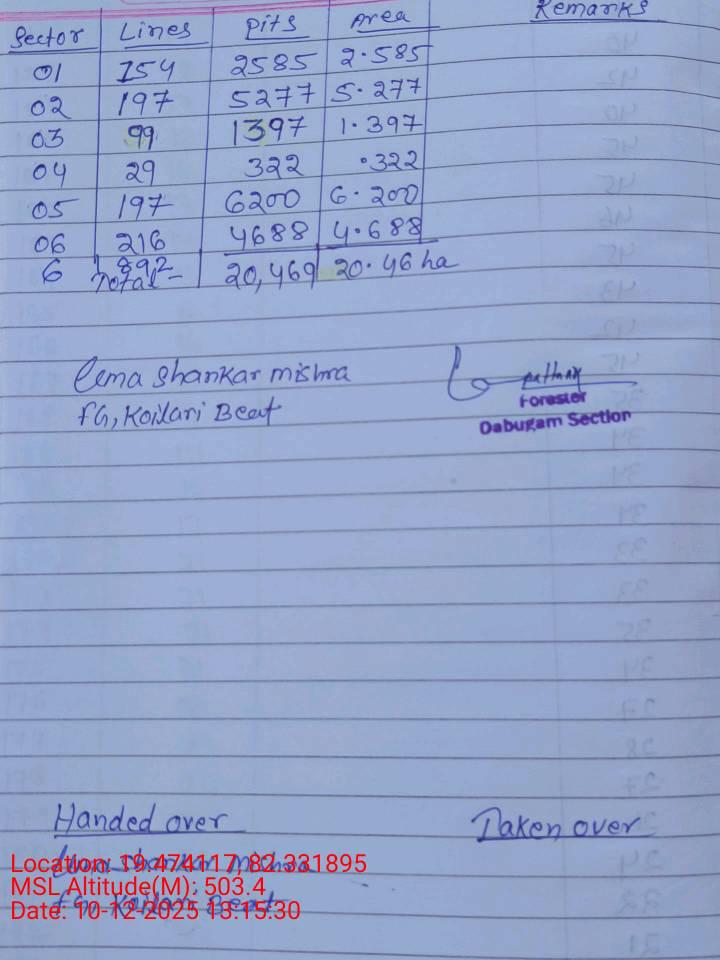 Sector Lines Pits Area Remarks
01 154 2585 2.585
02 197 5277 5.277
03 99 1397 1.397
04 29 322 .322
05 197 6200 6.200
06 216 4688 4.688
6 892 20,469 20.46 ha
Total-
Uma Shankar Mishra
FG, Koilari Beat
Forester
Dabugam Section
Handed over Taken over
Uma Shankar Mishra
FG, Koilari Beat
Location: 19.474117,82.331895
MSL Altitude(M): 503.4
Date: 10-12-2025 13:15:30